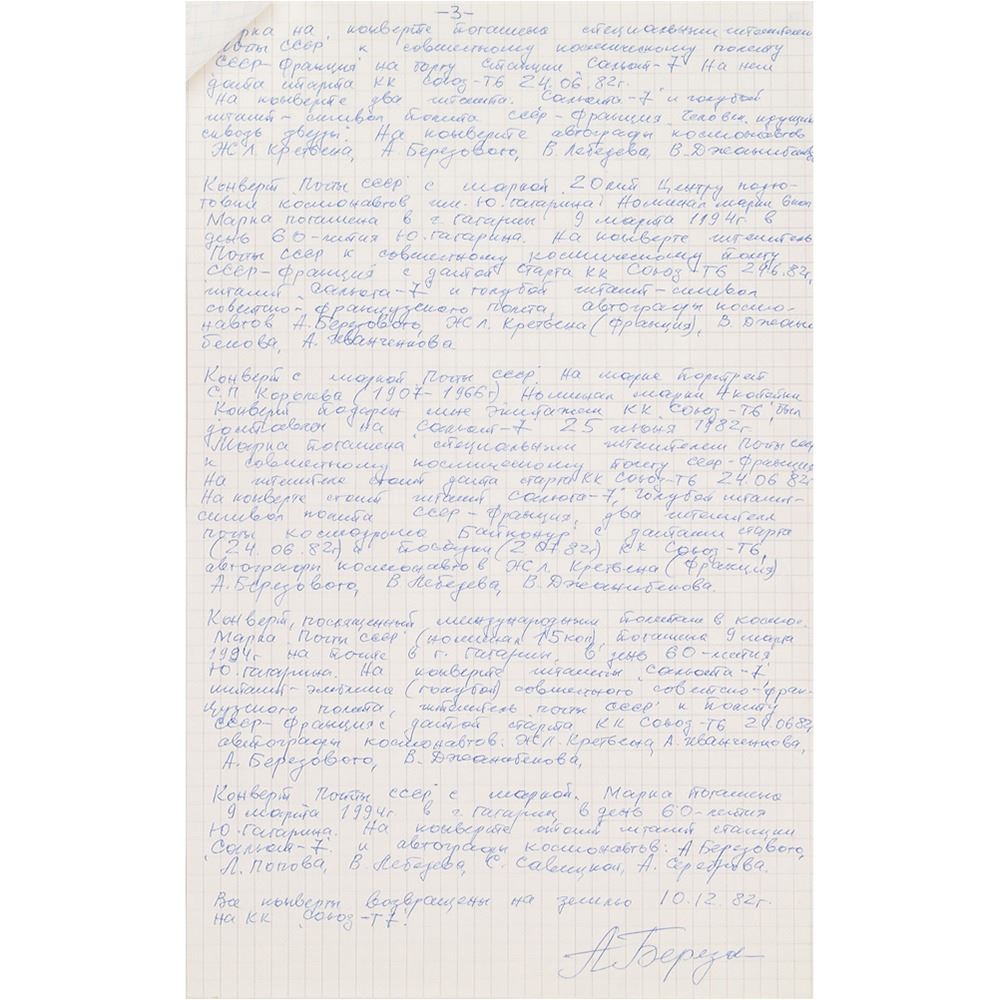 -3-
марка на конверте погашена специальным штемпелем
Почты СССР к совместному космическому полету
СССР-Франция на борту станции Салют-7. На нем
дата старта КК Союз-Т6 24.06.82г.
На конверте два штампа. Салюта-7 и голубой
штамп-символ полета СССР-Франция. Человек идущий
сквозь звезды. На конверте автографы космонавтов
Ж Л. Кретьена, А.Березового, В.Лебедева, В.Джанибекова
Конверт "Почты СССР" с маркой "20 лет Центру подго-
товки космонавтов им. Ю.Гагарина". Номинал марки 6коп
Марка погашена в г. Гагарин 9 марта 1994г. в
день 60-летия Ю.Гагарина. На конверте штемпель
Почты СССР к совместному космическому полету
СССР-Франция с датой старта КК Союз Т6 24.6.82г,
штамп "Салюта-7" и голубой штамп-символ
советско-французского полета, автографы космо-
навтов А.Березового, Ж Л. Кретьена (Франция), В. Джани
бекова, А. Иванченкова.
Конверт с маркой "Почты СССР" На марке портрет
С.П. Королева (1907-1966г) Номинал марки 4 копейки
Конверт подарен мне экипажем КК "Союз-Т6", был
доставлен на "Салют-7" 25 июня 1982г.
Марка погашена специальным штемпелем Почты СССР
к совместному космическому полету СССР-Франция
На штемпеле стоит дата старта КК Союз-Т6 24.06 82г
На конверте стоит штамп "Салюта-7", голубой штамп-
символ полета СССР-Франция, два штемпеля
почты космодрома Байконур с датами старта
(24.06.82г) и посадки (2 07 82г) КК Союз-Т6,
автографы космонавтов Ж Л. Кретьена (Франция)
А.Березового, В Лебедева, В.Джанибекова.
Конверт, посвященный международным полетам в космос.
Марка "Почты СССР" (номинал 15коп), погашена 9 марта
1994г на почте в г. Гагарин, в день 60-летия
Ю.Гагарина. На конверте штампы "Салюта-7",
штамп-эмблема (голубой) совместного советско-фран-
цузского полета, штемпель "почты СССР" к полету
СССР-Франция с датой старта КК Союз-Т6 24.06 82г
автографы космонавтов: Ж Л. Кретьена, А.Иванченкова,
А. Березового, В.Джанибекова,
Конверт "Почты СССР" с маркой. Марка погашена
9 марта 1994г. в г Гагарин, в день 60-летия
Ю.Гагарина. На конверте стоит штамп станции
"Салют-7" и автографы космонавтов: А Березового,
Л. Попова, В Лебедева, С. Савицкой, А. Сереброва.
Все конверты возвращены на землю 10.12.82г.
на КК "Союз-Т7".
А.Березо